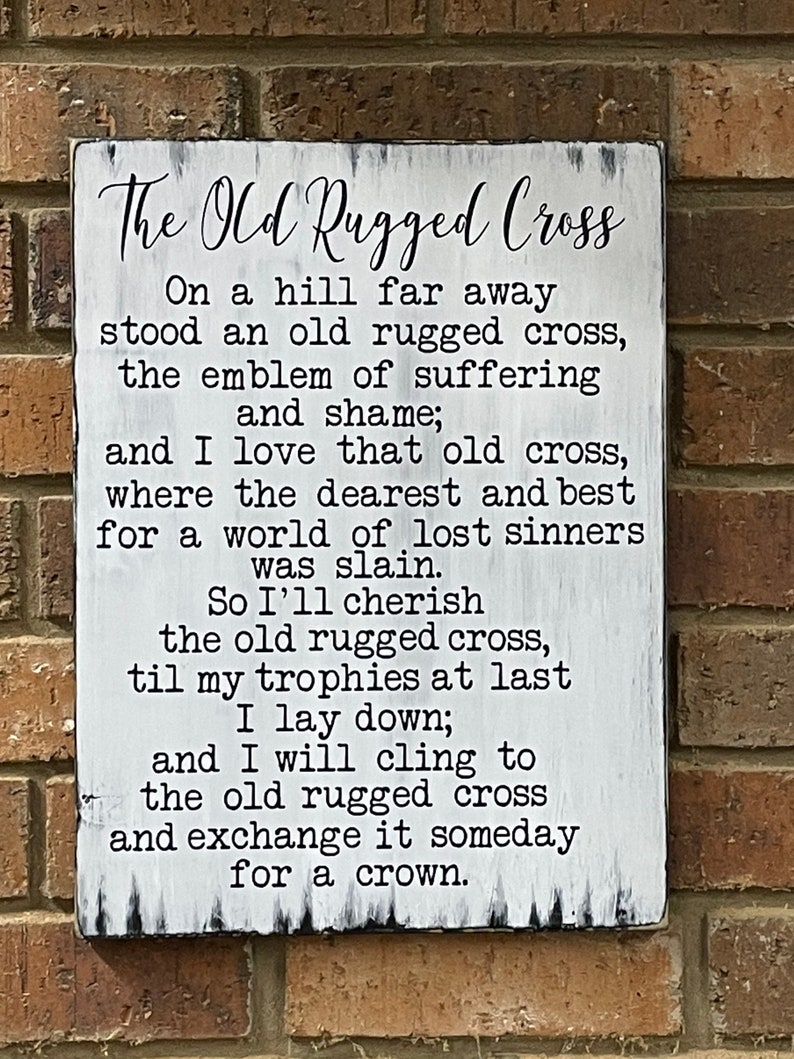 The Old Rugged Cross
On a hill far away
stood an old rugged cross,
the emblem of suffering
and shame;
and I love that old cross,
where the dearest and best
for a world of lost sinners
was slain.
So I'll cherish
the old rugged cross,
til my trophies at last
I lay down;
and I will cling to
the old rugged cross
and exchange it someday
for a crown.